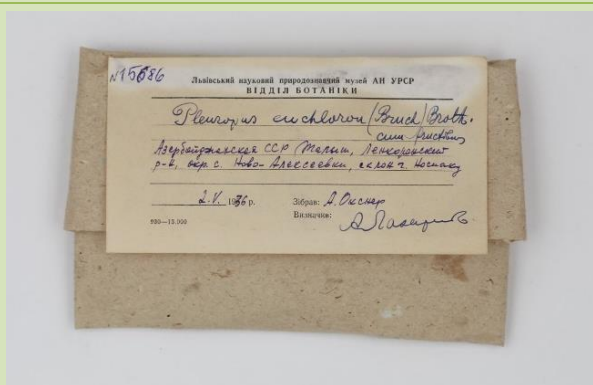 N15686
Львівський науковий природознавчий музей АН УРСР
ВІДДІЛ БОТАНІКИ
Pleuropus euchloron (Bruch) Broth.
cum fructibus
Азербайджанская ССР (Талыш, Ленкоранский
р-н, окр. с. Ново-Алексеевки, склон г.
2. V. 1936 р.
Зібрав: А. Окснер
Визначив: А. Лазаренко
800—15.000